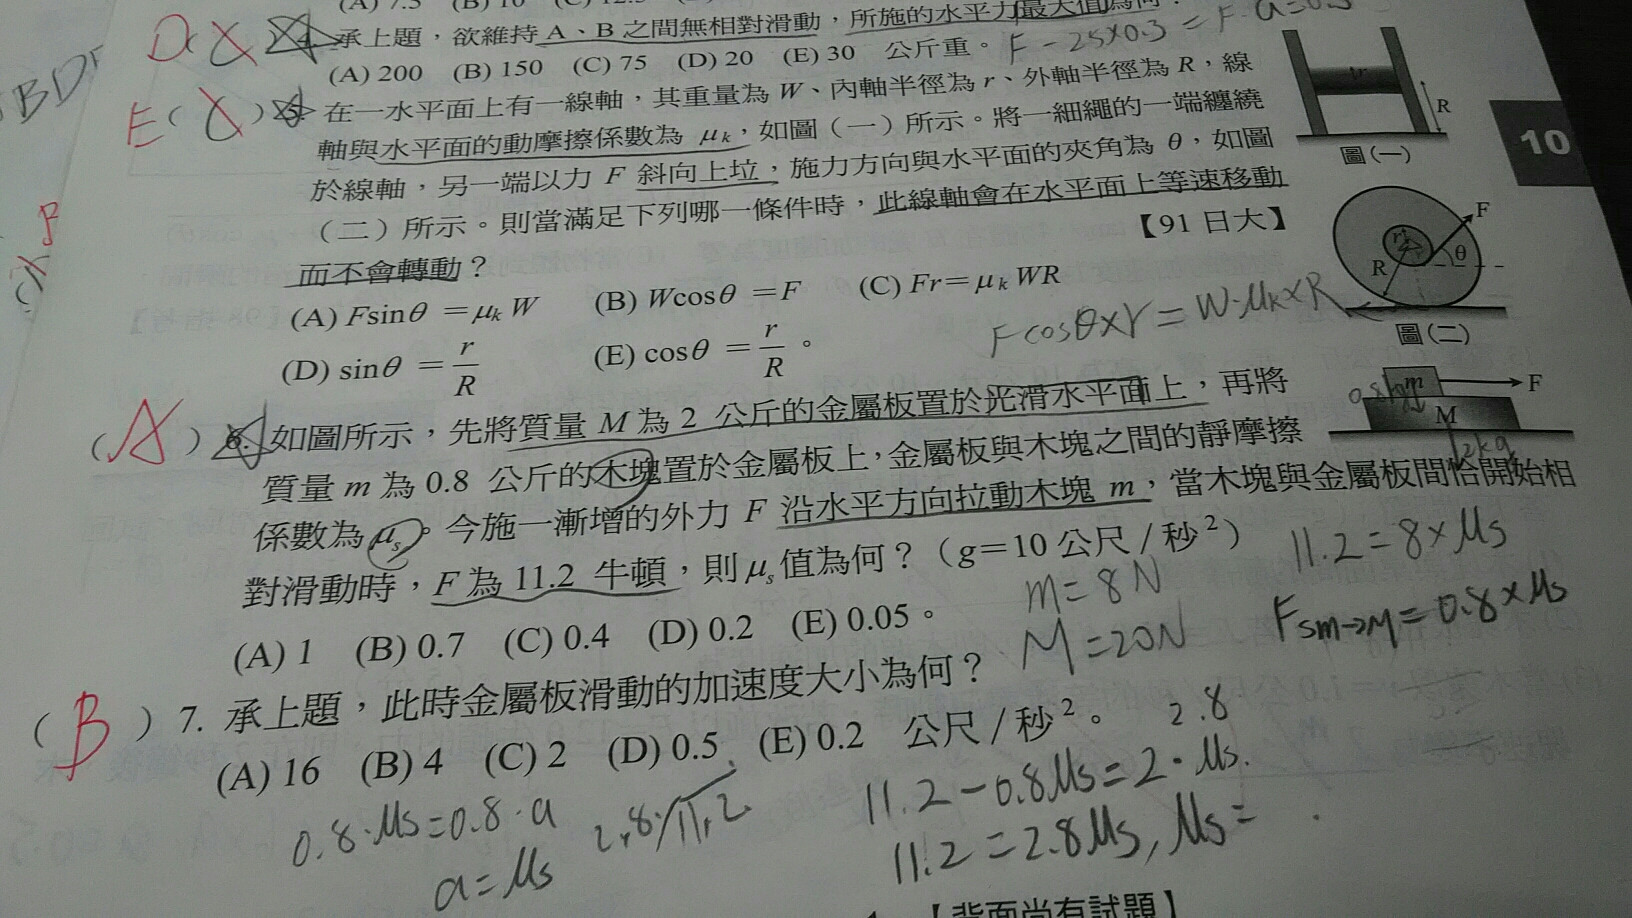 承上題，欲維持 A、B 之間無相對滑動，所施的水平力最大值為何？
(A) 200 (B) 150 (C) 75 (D) 20 (E) 30 公斤重。
F - 25×0.3 = F·a=0.3
D
E
在一水平面上有一線軸，其重量為 W、內軸半徑為 r、外軸半徑為 R，線
軸與水平面的動摩擦係數為 μk，如圖（一）所示。將一細繩的一端纏繞
於線軸，另一端以力 F 斜向上拉，施力方向與水平面的夾角為 θ，如圖
（二）所示。則當滿足下列哪一條件時，此線軸會在水平面上等速移動
而不會轉動？
【91 日大】
(A) Fsinθ =μk W (B) Wcosθ =F (C) Fr=μk WR
(D) sinθ = r/R (E) cosθ = r/R。
F cosθ×r = W·μk×R
R
圖(一)
10
F
r
R
θ
圖(二)
m
F
M
2kg
(A) 6. 如圖所示，先將質量 M 為 2 公斤的金屬板置於光滑水平面上，再將
質量 m 為 0.8 公斤的木塊置於金屬板上，金屬板與木塊之間的靜摩擦
係數為 μs。今施一漸增的外力 F 沿水平方向拉動木塊 m，當木塊與金屬板間恰開始相
對滑動時，F 為 11.2 牛頓，則 μs 值為何？（g=10 公尺／秒²）
(A) 1 (B) 0.7 (C) 0.4 (D) 0.2 (E) 0.05。
11.2=8×μs
m=8N
M=20N
Fsm→M=0.8×μs
(B) 7. 承上題，此時金屬板滑動的加速度大小為何？
(A) 16 (B) 4 (C) 2 (D) 0.5 (E) 0.2 公尺／秒²。
2.8
0.8·μs=0.8·a
a=μs
2.8 11.2
11.2-0.8μs=2·μs.
11.2=2.8μs, μs=
【背面尚有試題】